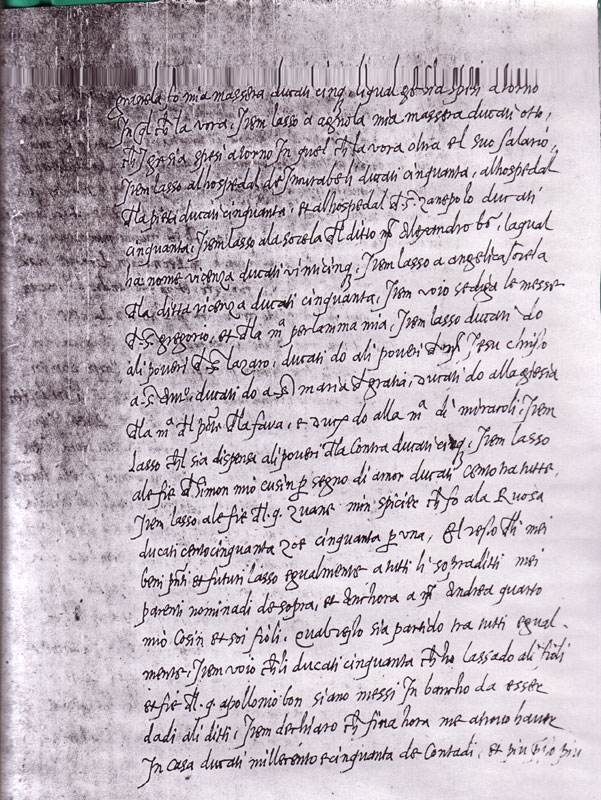 mia massera ducati cinq, li qual sia spesi atorno
In quel che la vora, Item lasso a agnola mia massera ducati otto,
che I sia spesi atorno In quel che la vora oltra el suo salario,
Item lasso alhospedal de Incurabeli ducati cinquanta, alhospedal
dla pietà ducati cinquanta, et alhospedal d s. zanepolo ducati
cinquanta, Item lasso ala sorela dl ditto mr Alexandro bo, laqual
ha nome vicenza ducati vinticinq, Item lasso a angelica sorela
dla ditta vicenza ducati cinquanta, Item voio se diga le messe
d s. gregorio, et dla ma per lanima mia, Item lasso ducati do
ali poveri d s. lazaro, ducati do ali poveri d Jesu christo
a s. ducati do a s. maria d gratia, ducati do alla giesia
dla ma dl dlla fava, e duc do alla ma di miracoli, Item
lasso chel sia dispensa ali poveri dla Contra ducati cinq, Item lasso
ale fie d Simon mio cusin p segno di amor ducati cento tra tutte,
Item lasso ale fie dl q. zuane min spicier che fo ala Ruosa
ducati centocinquanta zoe cinquanta p una, El resto dli mei
beni pnti et futuri lasso egualmente a tutti li sopraditti mei
parenti nominadi de sopra, et Anchora a mr Andrea quarto
mio Cosin et soi fioli, qual resto sia partido tra tutti egual-
mente, Item voio che li ducati cinquanta che ho lassado ali fioli
et fie dl q. apollonio bon siano messi In bancho da esser
dadi ali ditti, Item dechiaro che fina hora me atrovo haver
In Casa ducati millecento e cinquanta de Contadi, et piu